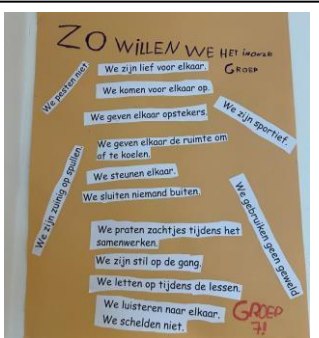 ZO WILLEN WE HET IN ONZE
GROEP
We pesten niet.
We zijn lief voor elkaar.
We komen voor elkaar op.
We geven elkaar opstekers.
We zijn sportief.
We geven elkaar de ruimte om
af te koelen.
We steunen elkaar.
We sluiten niemand buiten.
We zijn zuinig op spullen.
We gebruiken geen geweld
We praten zachtjes tijdens het
samenwerken.
We zijn stil op de gang.
We letten op tijdens de lessen.
We luisteren naar elkaar.
We schelden niet.
GROEP
7!